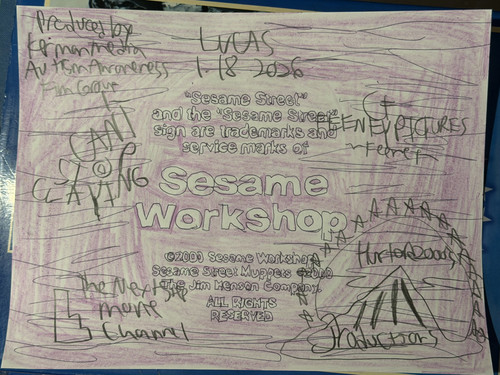 Produced by
Kerman media
Autism Awareness
Film Corque
LUCAS
1-18 2026
CAN'T
STOP
CLAYING
"Sesame Street"
and the "Sesame Street"
sign are trademarks and
service marks of
Sesame
Workshop
FEENEY PICTURES
©2009 Sesame Workshop
Sesame Street Muppets
The Jim Henson Company.
ALL RIGHTS
RESERVED
AAAAAAAAAA
Productions
The Next Step
movie
Channel